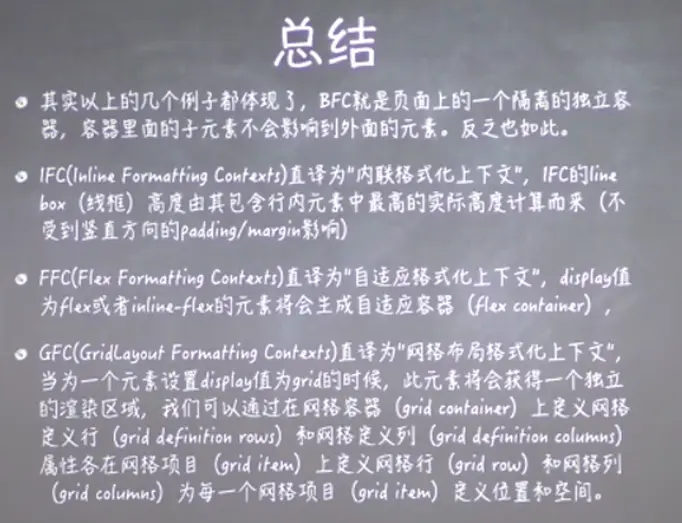 总结
其实以上的几个例子都体现了，BFC就是页面上的一个隔离的独立容
器，容器里面的子元素不会影响到外面的元素。反之也如此。
IFC(Inline Formatting Contexts)直译为"内联格式化上下文"，IFC的line
box（线框）高度由其包含行内元素中最高的实际高度计算而来（不
受到竖直方向的padding/margin影响)
FFC(Flex Formatting Contexts)直译为"自适应格式化上下文"，display值
为flex或者inline-flex的元素将会生成自适应容器（flex container），
GFC(GridLayout Formatting Contexts)直译为"网格布局格式化上下文"，
当为一个元素设置display值为grid的时候，此元素将会获得一个独立
的渲染区域，我们可以通过在网格容器（grid container）上定义网格
定义行（grid definition rows）和网格定义列（grid definition columns）
属性各在网格项目（grid item）上定义网格行（grid row）和网格列
（grid columns）为每一个网格项目（grid item）定义位置和空间。